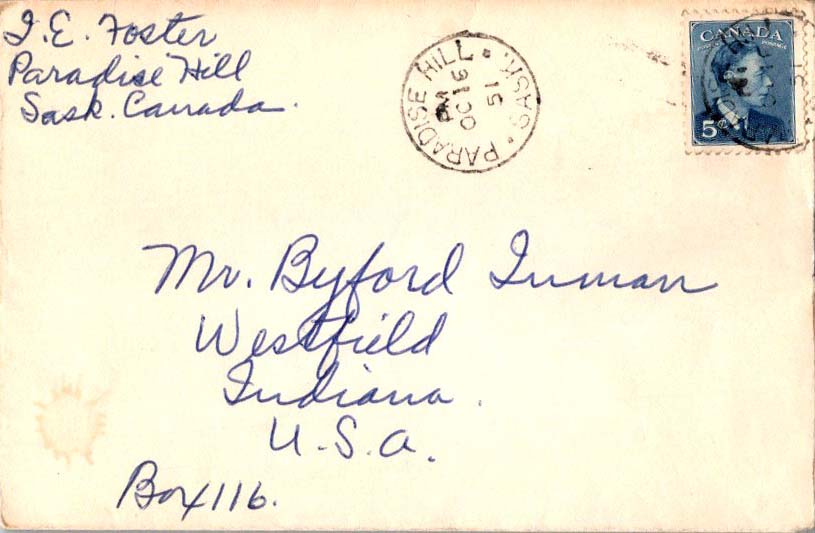 I. E. Foster
Paradise Hill
Sask. Canada.
PARADISE HILL • SASK. •
PM
OC 16
51
CANADA
POSTES POSTAGE
5¢
Mr. Byford Inman
Westfield
Indiana.
U.S.A.
Box 116.